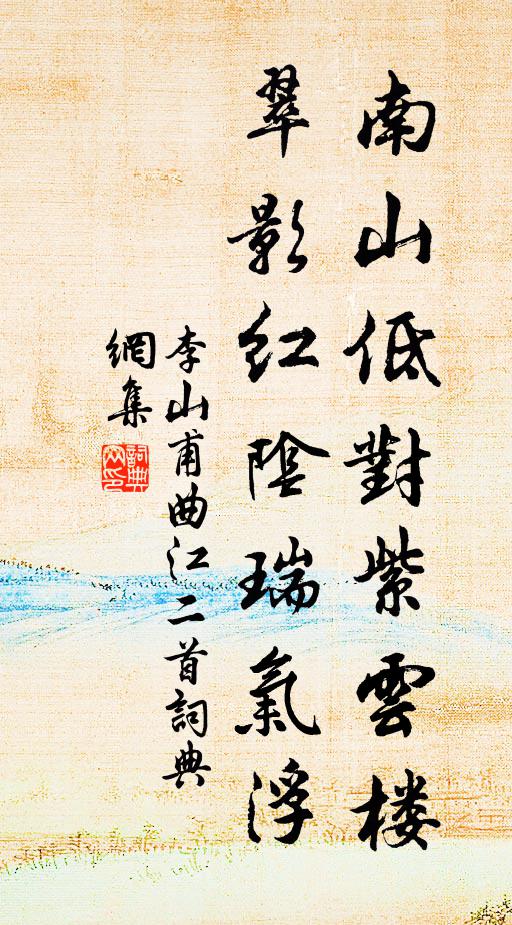 南山低對紫雲楼
翠影紅陰瑞氣浮
李山甫曲江二首詞典
網集
詞典
网印